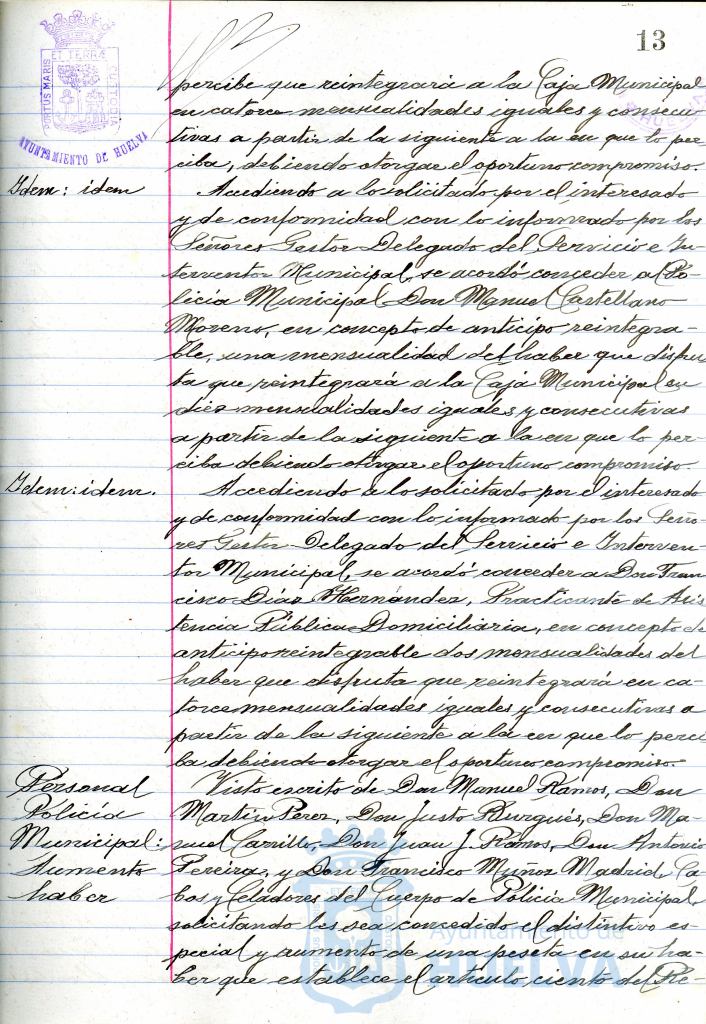 13
PORTUS MARIS ET TERRÆ CUSTODIA
AYUNTAMIENTO DE HUELVA
percibe que reintegrará a la Caja Municipal
en catorce mensualidades iguales y consecu
tivas a partir de la siguiente a la en que lo per-
ciba, debiendo otorgar el oportuno compromiso.
Idem: idem
Accediendo a lo solicitado por el interesado
y de conformidad con lo informado por los
Señores Gestor Delegado del Servicio e In-
terventor Municipal, se acordó conceder al Po-
licía Municipal Don Manuel Castellano
Moreno, en concepto de anticipo reintegra-
ble, una mensualidad del haber que disfru
ta que reintegrará a la Caja Municipal en
diez mensualidades iguales y consecutivas
a partir de la siguiente a la en que lo per-
ciba debiendo otorgar el oportuno compromiso.
Idem: idem.
Accediendo a lo solicitado por el interesado
y de conformidad con lo informado por los Seño-
res Gestor Delegado del Servicio e Interven-
tor Municipal, se acordó conceder a Don Fran
cisco Díaz Hernández, Practicante de Asis
tencia Pública Domiciliaria, en concepto de
anticipo reintegrable dos mensualidades del
haber que disfruta que reintegrará en ca-
torce mensualidades iguales y consecutivas a
partir de la siguiente a la en que lo perci
ba debiendo otorgar el oportuno compromiso.
Personal
Policía
Municipal:
Aumento
haber
Visto escrito de Don Manuel Ramos, Don
Martín Perez, Don Justo Burgués, Don Ma-
nuel Carrillo, Don Juan J. Ramos, Don Antonio
Pereira, y Don Francisco Muñoz Madrid, Ca-
bos y Celadores del Cuerpo de Policía Municipal,
solicitando les sea concedido el distintivo es-
pecial y aumento de una peseta en su ha-
ber que establece el artículo ciento del Re-
Ayuntamiento de
HUELVA